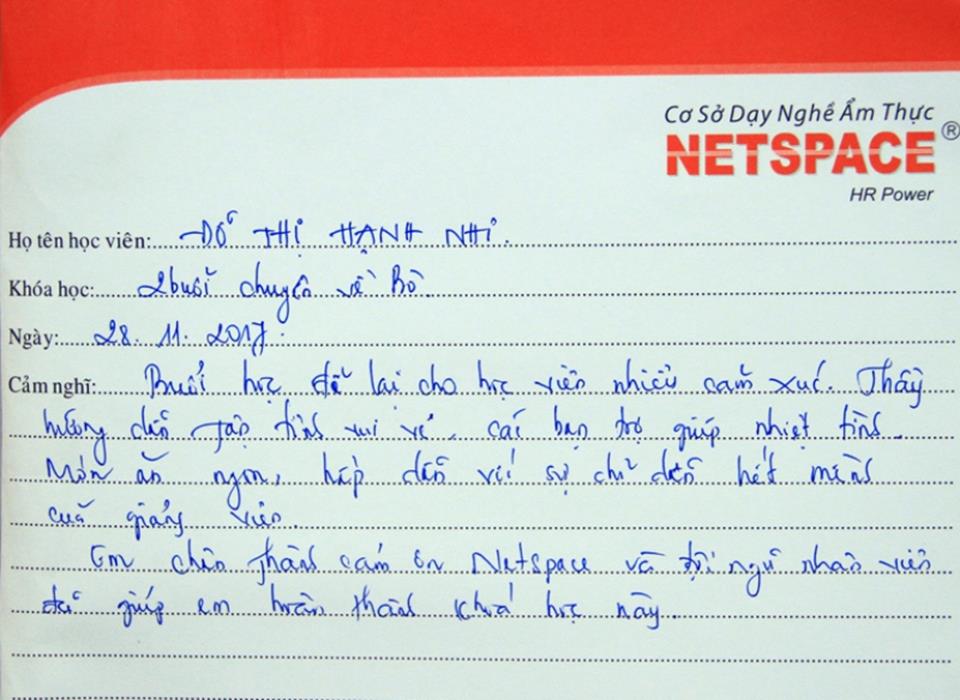 Cơ Sở Dạy Nghề Ẩm Thực
NETSPACE ®
HR Power
Họ tên học viên: ĐỖ THỊ HẠNH NHI.
Khóa học: 2 buổi chuyên về Bò.
Ngày: 28. 11. 2017.
Cảm nghĩ: Buổi học để lại cho học viên nhiều cảm xúc. Thầy
hướng dẫn tận tình vui vẻ, các bạn trợ giúp nhiệt tình.
Món ăn ngon, hấp dẫn với sự chỉ dẫn hết mình
của giảng viên.
Em chân thành cám ơn Netspace và đội ngũ nhân viên
đã giúp em hoàn thành khoá học này.